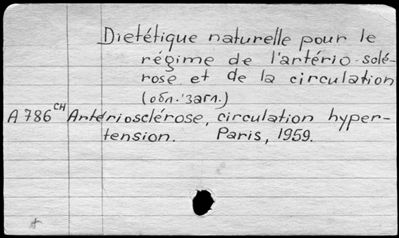 Dietétique naturelle pour le
régime de l'artério-sclé-
rose et de la circulation
(обл. загл.)
A 786 CH Artériosclérose, circulation hyper-
tension. Paris, 1959.